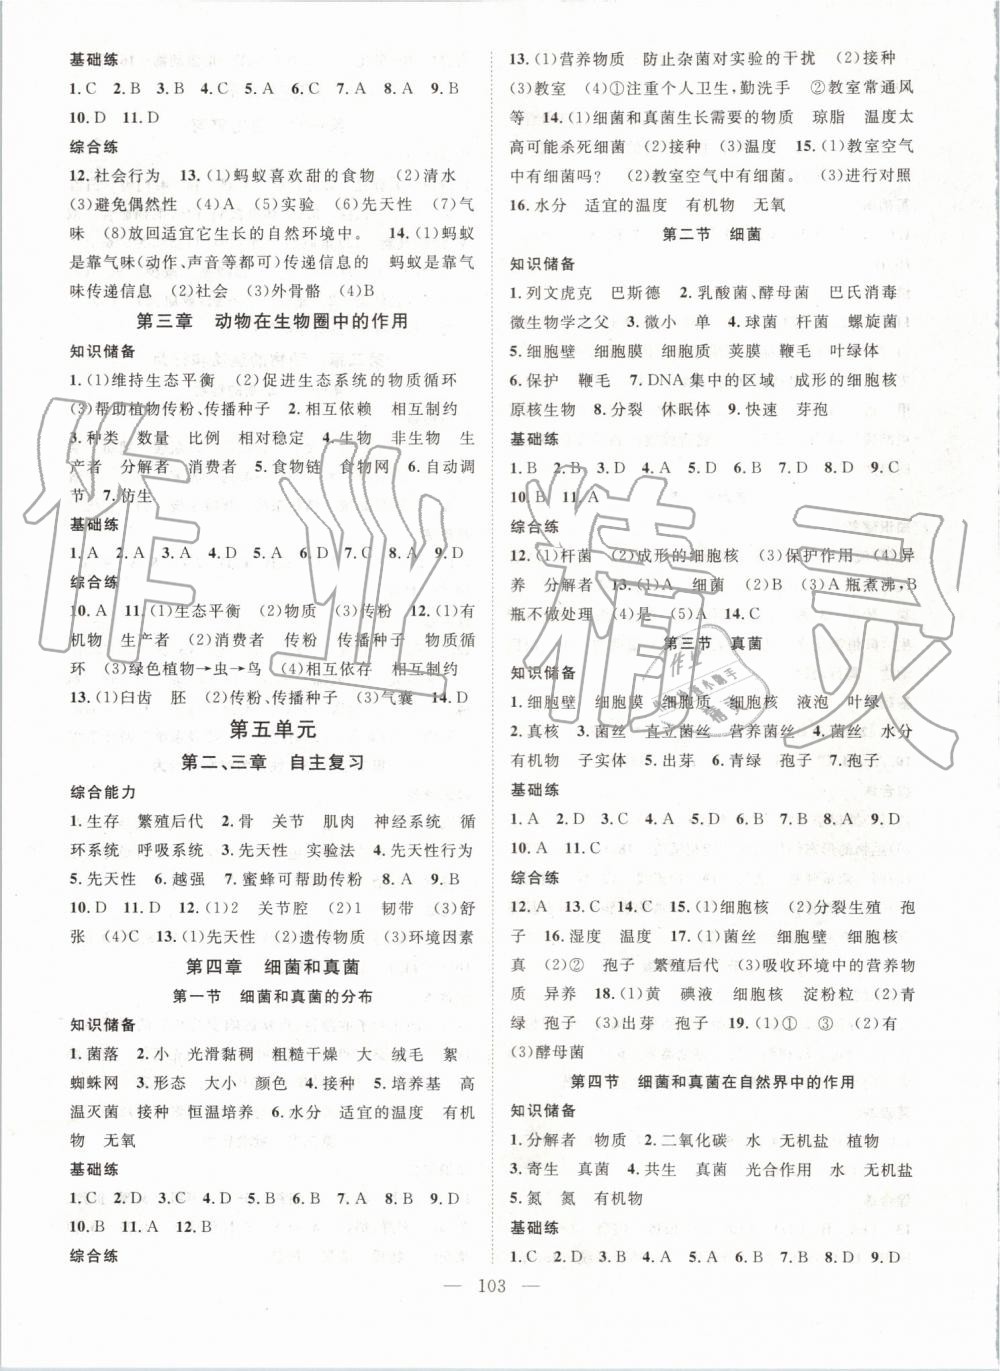 基础练
1. C 2. B 3. C 4. C 5. A 6. C 7. C 8. A 9. B
10. D 11. D
综合练
12. 社会行为 13. (1)蚂蚁喜欢甜的食物 (2)清水
(3)避免偶然性 (4)A (5)实验 (6)先天性 (7)气
味 (8)放回适宜它生长的自然环境中。 14. (1)蚂蚁
是靠气味(动作、声音等都可)传递信息的 蚂蚁是靠气
味传递信息 (2)社会 (3)外骨骼 (4)B
第三章 动物在生物圈中的作用
知识储备
1. (1)维持生态平衡 (2)促进生态系统的物质循环
(3)帮助植物传粉、传播种子 2. 相互依赖 相互制约
3. 种类 数量 比例 相对稳定 4. 生物 非生物 生
产者 分解者 消费者 5. 食物链 食物网 6. 自动调
节 7. 仿生
基础练
1. A 2. A 3. A 4. D 5. D 6. D 7. C 8. A 9. D
综合练
10. A 11. (1)生态平衡 (2)物质 (3)传粉 12. (1)有
机物 生产者 (2)消费者 传粉 传播种子 物质循
环 (3)绿色植物→虫→鸟 (4)相互依存 相互制约
13. (1)臼齿 胚 (2)传粉、传播种子 (3)气囊 14. D
第五单元
第二、三章 自主复习
综合能力
1. 生存 繁殖后代 2. 骨 关节 肌肉 神经系统 循
环系统 呼吸系统 3. 先天性 实验法 4. 先天性行为
5. 先天性 6. 越强 7. 蜜蜂可帮助传粉 8. A 9. C
10. D 11. D 12. (1)2 关节腔 (2)1 韧带 (3)舒
张 (4)C 13. (1)先天性 (2)遗传物质 (3)环境因素
第四章 细菌和真菌
第一节 细菌和真菌的分布
知识储备
1. 菌落 2. 小 光滑黏稠 粗糙干燥 大 绒毛 絮
蜘蛛网 3. 形态 大小 颜色 4. 接种 5. 培养基 高
温灭菌 接种 恒温培养 6. 水分 适宜的温度 有机
物 无氧
基础练
1. C 2. D 3. C 4. C 5. A 6. B 7. C 8. D 9. D
10. B 11. A 12. B
综合练
13. (1)营养物质 防止杂菌对实验的干扰 (2)接种
(3)教室 (4)①注重个人卫生,勤洗手 ②教室常通风
等 14. (1)细菌和真菌生长需要的物质 琼脂 温度太
高可能杀死细菌 (2)接种 (3)温度 15. (1)教室空气
中有细菌吗? (2)教室空气中有细菌。 (3)进行对照
16. 水分 适宜的温度 有机物 无氧
第二节 细菌
知识储备
1. 列文虎克 巴斯德 2. 乳酸菌、酵母菌 巴氏消毒
微生物学之父 3. 微小 单 4. 球菌 杆菌 螺旋菌
5. 细胞壁 细胞膜 细胞质 荚膜 鞭毛 叶绿体
6. 保护 鞭毛 7. DNA 集中的区域 成形的细胞核
原核生物 8. 分裂 休眠体 9. 快速 芽孢
基础练
1. B 2. B 3. D 4. A 5. D 6. D 7. D 8. D 9. C
10. B 11. A
综合练
12. (1)杆菌 (2)成形的细胞核 (3)保护作用 (4)异
养 分解者 13. (1)A 细菌 (2)B (3)A瓶煮沸,B
瓶不做处理 (4)是 (5)A 14. C
第三节 真菌
知识储备
1. 细胞壁 细胞膜 细胞质 细胞核 液泡 叶绿体
2. 真核 3. 菌丝 直立菌丝 营养菌丝 4. 菌丝 水分
有机物 子实体 5. 出芽 6. 青绿 孢子 7. 孢子
基础练
1. A 2. D 3. C 4. D 5. D 6. D 7. B 8. A 9. D
10. A 11. C
综合练
12. A 13. C 14. C 15. (1)细胞核 (2)分裂生殖 孢
子 16. 湿度 温度 17. (1)菌丝 细胞壁 细胞核
真 (2)② 孢子 繁殖后代 (3)吸收环境中的营养物
质 异养 18. (1)黄 碘液 细胞核 淀粉粒 (2)青
绿 孢子 (3)出芽 孢子 19. (1)① ③ (2)有
(3)酵母菌
第四节 细菌和真菌在自然界中的作用
知识储备
1. 分解者 物质 2. 二氧化碳 水 无机盐 植物
3. 寄生 真菌 4. 共生 真菌 光合作用 水 无机盐
5. 氮 氮 有机物
基础练
1. C 2. D 3. B 4. A 5. D 6. B 7. D 8. D 9. D
— 103 —
作业精灵